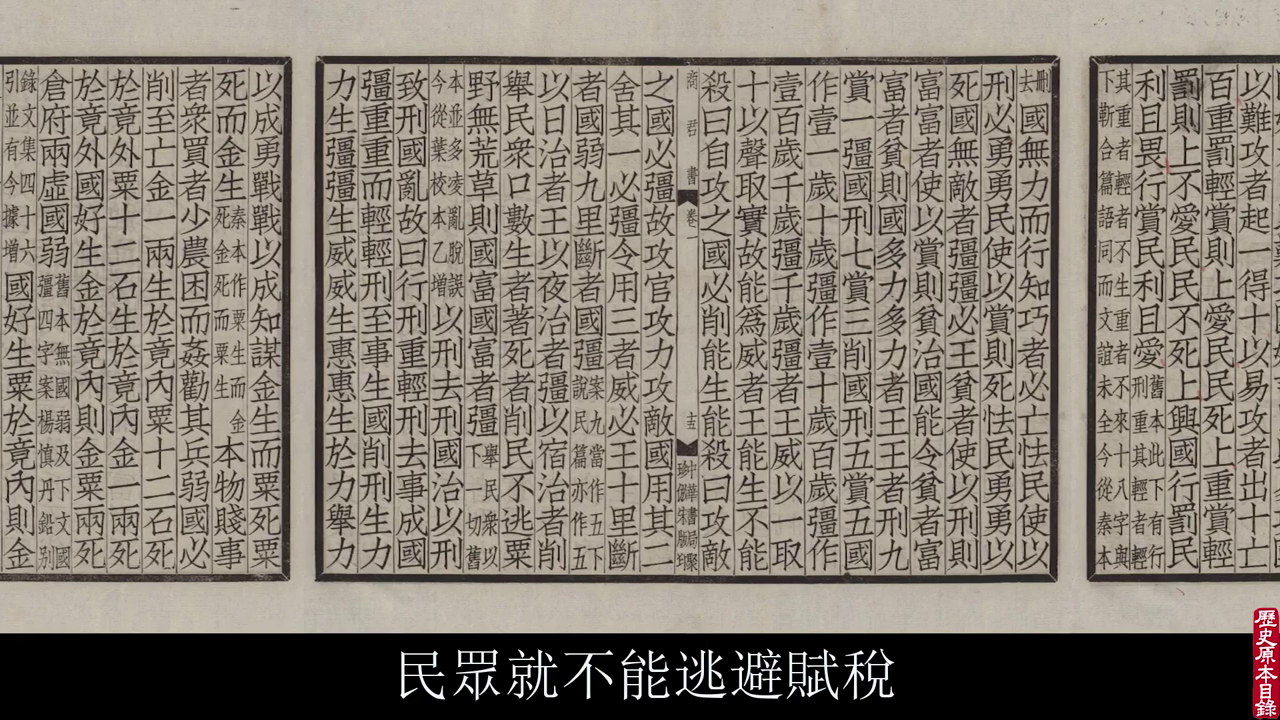 以難攻者起一得十以易攻者出十亡
百重罰輕賞則上愛民民死上重賞輕
罰則上不愛民民不死上興國行罰民
利且畏行賞民利且愛舊本此下有行刑重其輕者輕
其重者輕者不生重者不來十八字與下靳令篇語同而文誼未全今從秦本
刪去國無力而行知巧者必亡怯民使以
刑必勇勇民使以賞則死怯民勇勇民
死國無敵者彊彊必王貧者使以刑則
富富者使以賞則貧治國能令貧者富
富者貧則國多力多力者王王者刑九
賞一彊國刑七賞三削國刑五賞五國
作壹一歲十歲彊作壹十歲百歲彊作
壹百歲千歲彊千歲彊者王威以一取
十以聲取實故能爲威者王能生不能
殺曰自攻之國必削能生能殺曰攻敵
商君書 卷一
十五 中華書局聚
珍倣宋版印
之國必彊故攻官攻力攻敵國用其二
舍其一必彊令用三者威必王十里斷
者國弱九里斷者國彊案九當作五下說民篇亦作五
以日治者王以夜治者彊以宿治者削
舉民衆口數生者著死者削民不逃粟
野無荒草則國富國富者彊舉民衆以下一切舊
本並多凌亂脫誤今從葉校本乙增以刑去刑國治以刑
致刑國亂故曰行刑重輕刑去事成國
彊重重而輕輕刑至事生國削刑生力
力生彊彊生威威生惠惠生於力舉力
以成勇戰戰以成知謀金生而粟死粟
死而金生秦本作粟生而金死金死而粟生本物賤事
者衆買者少農困而姦勸其兵弱國必
削至亡金一兩生於竟內粟十二石死
於竟外粟十二石生於竟內金一兩死
於竟外國好生金於竟內則金粟兩死
倉府兩虛國弱舊本無國弱及下文國彊四字案楊慎丹鉛別
錄文集四十六引並有今據增國好生粟於竟內則金
民眾就不能逃避賦稅
歷史原本目錄